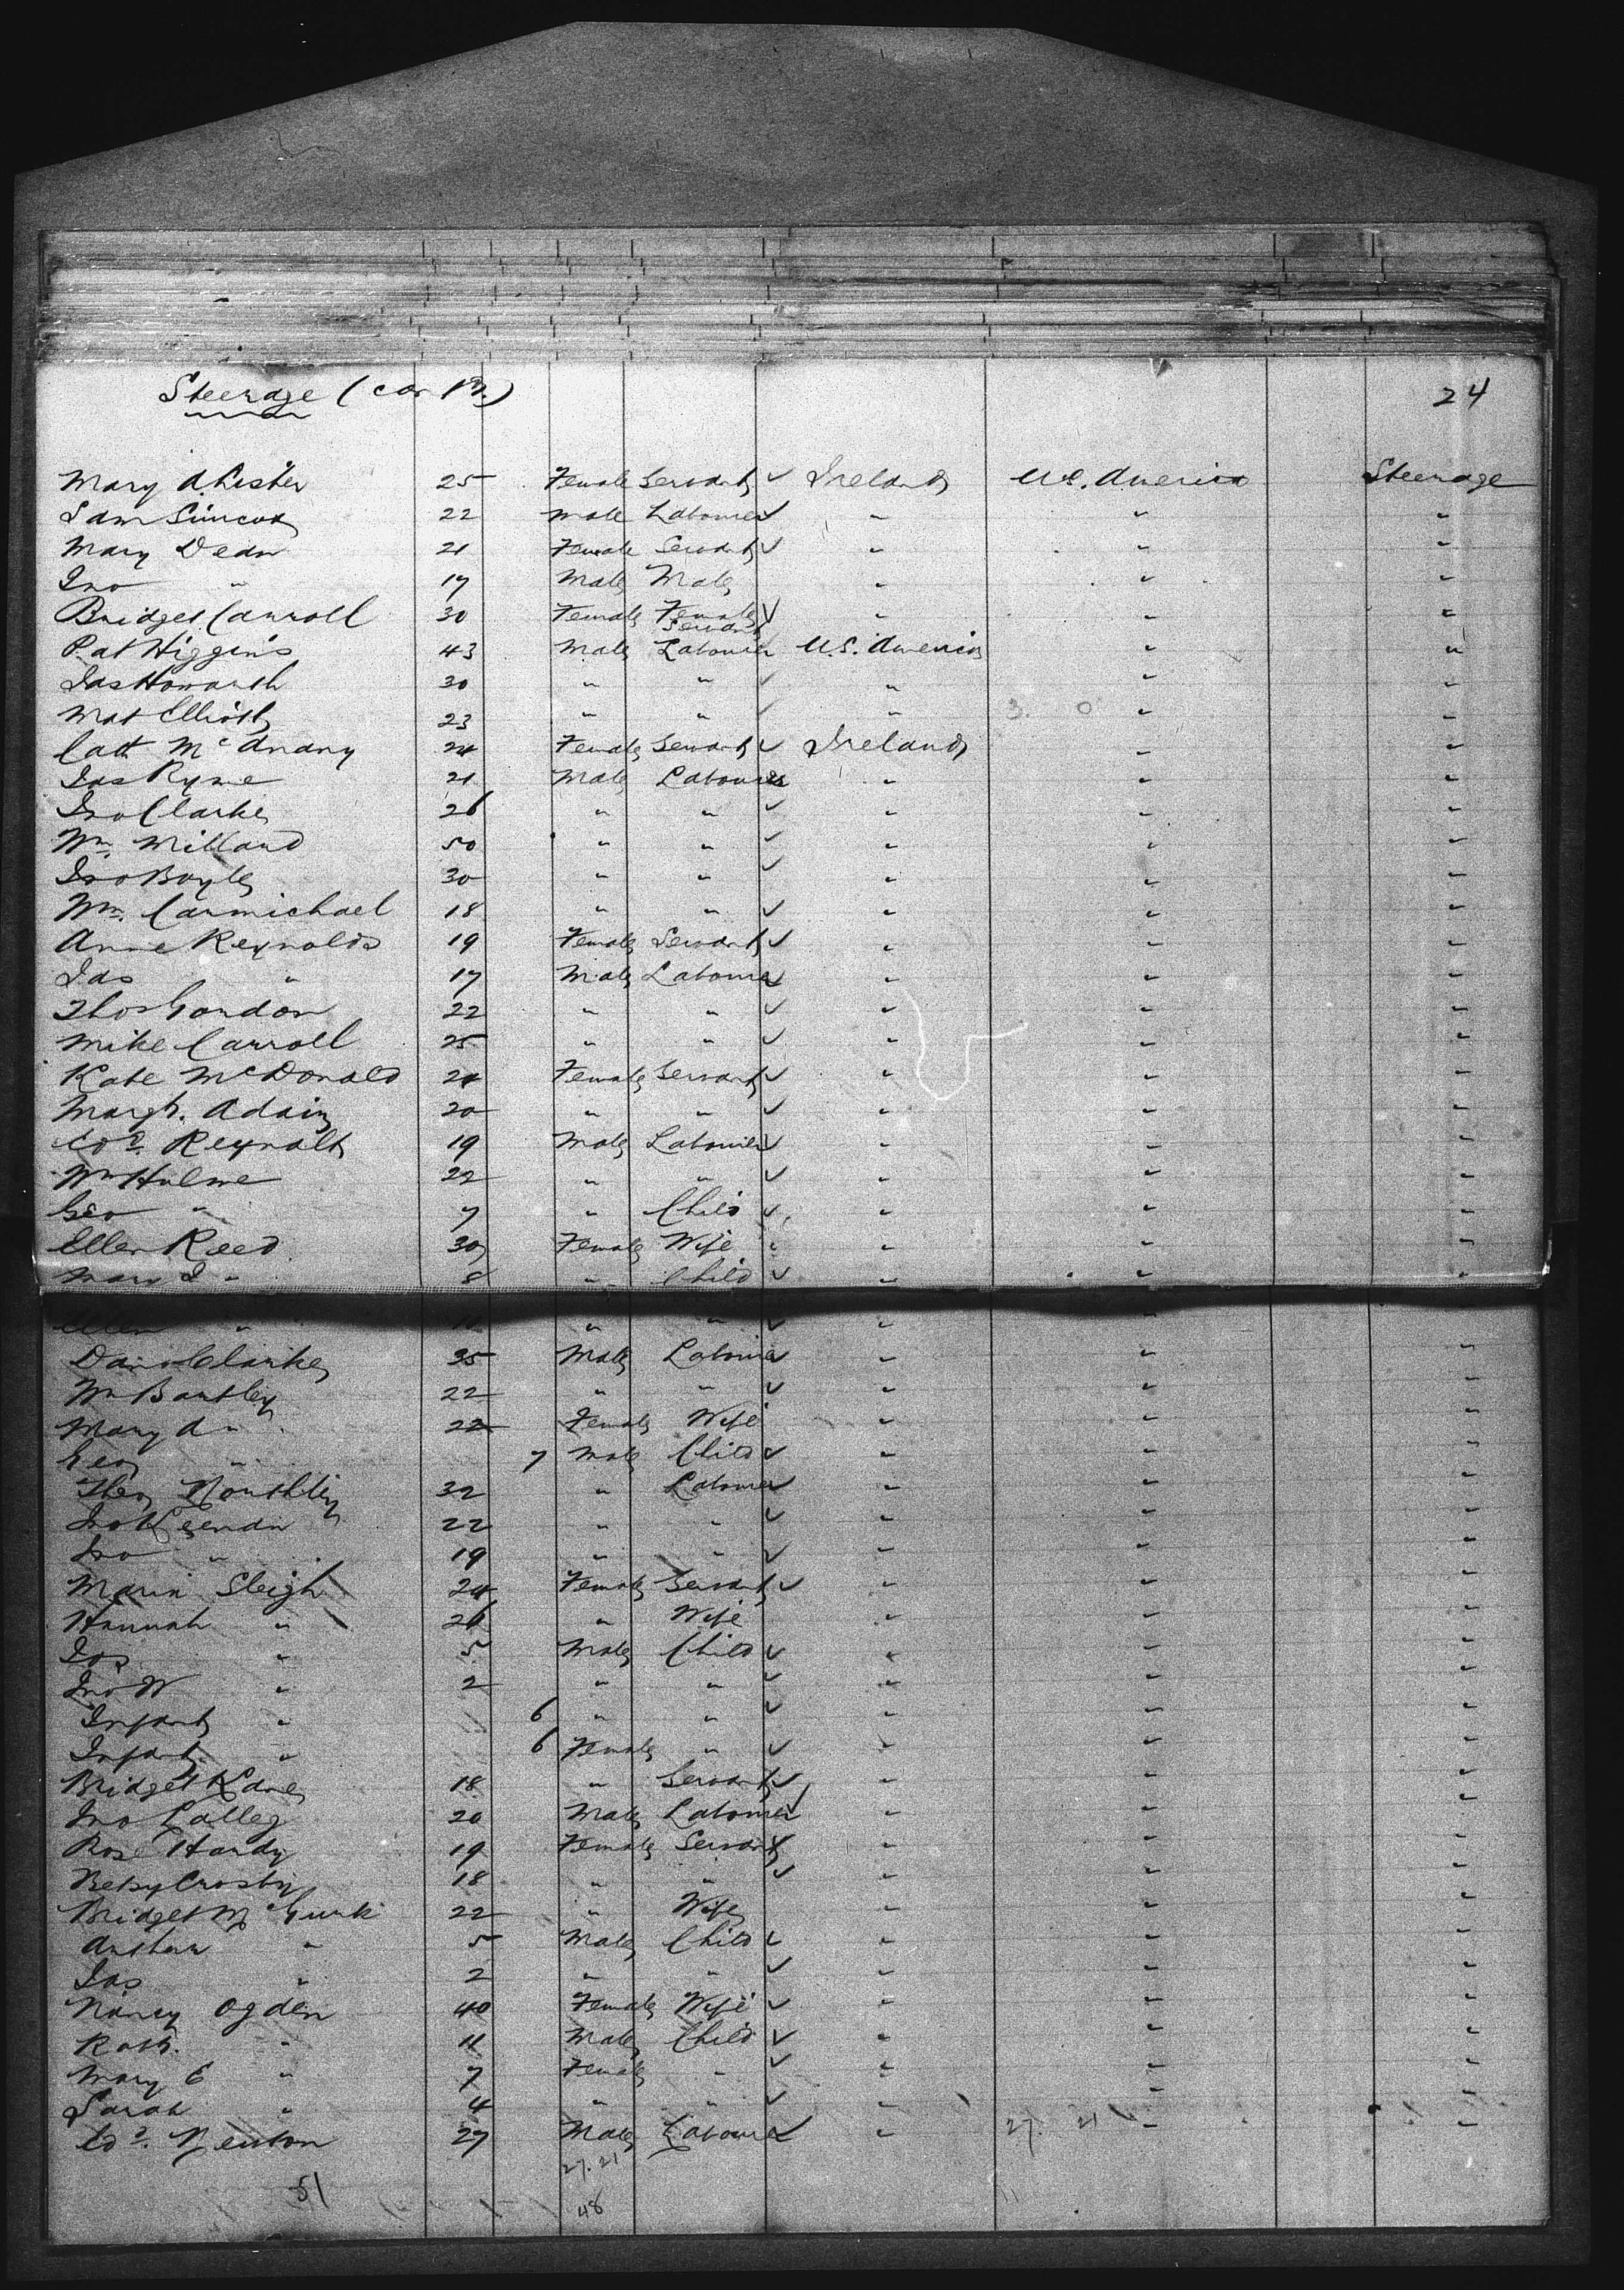 Steerage (con 24
Mary A. Lester 25 Female Servant ✓ Ireland U.S. America Steerage
Sam Simcox 22 Male Labourer ✓ " " "
Mary Dean 21 Female Servant ✓ " " "
Jno " 17 Male Male " " "
Bridget Carroll 30 Female Female Servant ✓ " " "
Pat Higgins 43 Male Labourer U.S. America " "
Jas Howarth 30 " " ✓ " " "
Mat Elliott 23 " " ✓ " 3. 0 " "
Cath McAnany 24 Female Servant ✓ Ireland " "
Jas Ryme 21 Male Labourer " " "
Jno Clarke 26 " " ✓ " " "
Wm. Millard 50 " " ✓ " " "
Jno Boyle 30 " " ✓ " " "
Wm. Carmichael 18 " " ✓ " " "
Anne Reynolds 19 Female Servant ✓ " " "
Jas " 17 Male Labourer ✓ " " "
Thos Gordon 22 " " ✓ " " "
Mike Carroll 25 " " ✓ " " "
Kate McDonald 24 Female Servant ✓ " " "
Margt. Adair 20 " " ✓ " " "
Edd. Reynolt 19 Male Labourer ✓ " " "
Wm Hulme 22 " " ✓ " " "
Geo " 7 " Child ✓ " " "
Ellen Reed 30 Female Wife " " "
Mary J " 8 " Child ✓ " " "
Ellen " " " ✓ " "
Dan Clarke 35 Male Labourer ✓ " " "
Wm Bartley 22 " " ✓ " " "
Mary A " 22 Female Wife " " "
Geo " 7 Male Child ✓ " " "
Theo 32 " Labourer ✓ " " "
Jno 22 " " ✓ " " "
Jno " 19 " " ✓ " " "
Maria Sleigh 24 Female Servant ✓ " " "
Hannah " 26 " Wife " " "
Jos " 5 Male Child ✓ " " "
Jno W " 2 " " ✓ " " "
Infant " 6 " " ✓ " "
Infant " 6 Female " ✓ " " "
Bridget Kane 18 " Servant ✓ " " "
Jno Lalleg 20 Male Labourer ✓ " " "
Rose Hardy 19 Female Servant ✓ " " "
Betsy Crosby 18 " " ✓ " " "
Bridget McGurk 22 " Wife " " "
Arthur " 5 Male Child ✓ " " "
Jas " 2 " " ✓ " " "
Nancy Ogden 40 Female Wife ✓ " " "
Robt. " 11 Male Child ✓ " " "
Mary E " 7 Female " ✓ " " "
Sarah " 4 " " ✓ " " "
Edd. Newton 27 Male Labourer ✓ " 27. 21 " "
27. 21
51
48